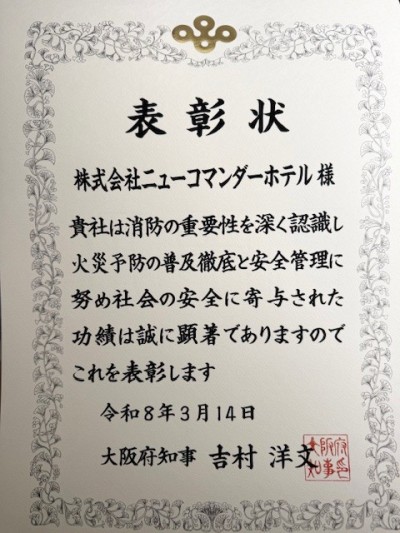 表彰状
株式会社ニューコマンダーホテル 様
貴社は消防の重要性を深く認識し
火災予防の普及徹底と安全管理に
努め社会の安全に寄与された
功績は誠に顕著でありますので
これを表彰します
令和8年3月14日
大阪府知事 吉村 洋文
大阪府知事印